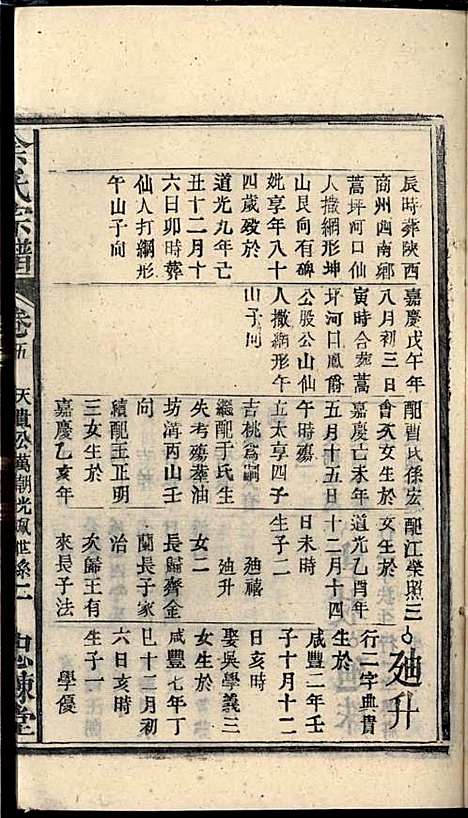 辰時葬陝西
商州西南鄉
蒿坪河口仙
人撒網形坤
山艮向有碑
妣享年八十
四歲歿於
道光九年亡
丑十二月十
六日卯時葬
仙人打網形
午山子向
嘉慶戊午年
八月初三日
寅時合葬蒿
坪河口鳳爵
公股公山仙
人撒網形午
山子向
配曹氏孫宏
會次女生於
嘉慶己未年
五月十五日
午時殤
立太享四子
古桃為嗣
繼配于氏生
失考殤葬油
坊溝丙山壬
向
續配王正明
三女生於
嘉慶乙亥年
配江榮照三
女生於
道光乙酉年
十二月十四
日未時
生子二
廸禧
廸升
女二
長歸齊金
蘭長子家
治
次歸王有
來長子法
廸升
行二字典貴
生於
咸豐二年壬
子十月十二
日亥時
娶吳學義三
女生於
咸豐七年丁
巳十二月初
六日亥時
生子一
學優
余氏宗譜
卷五
天貴公萬朝光鳳世系
忠諫堂